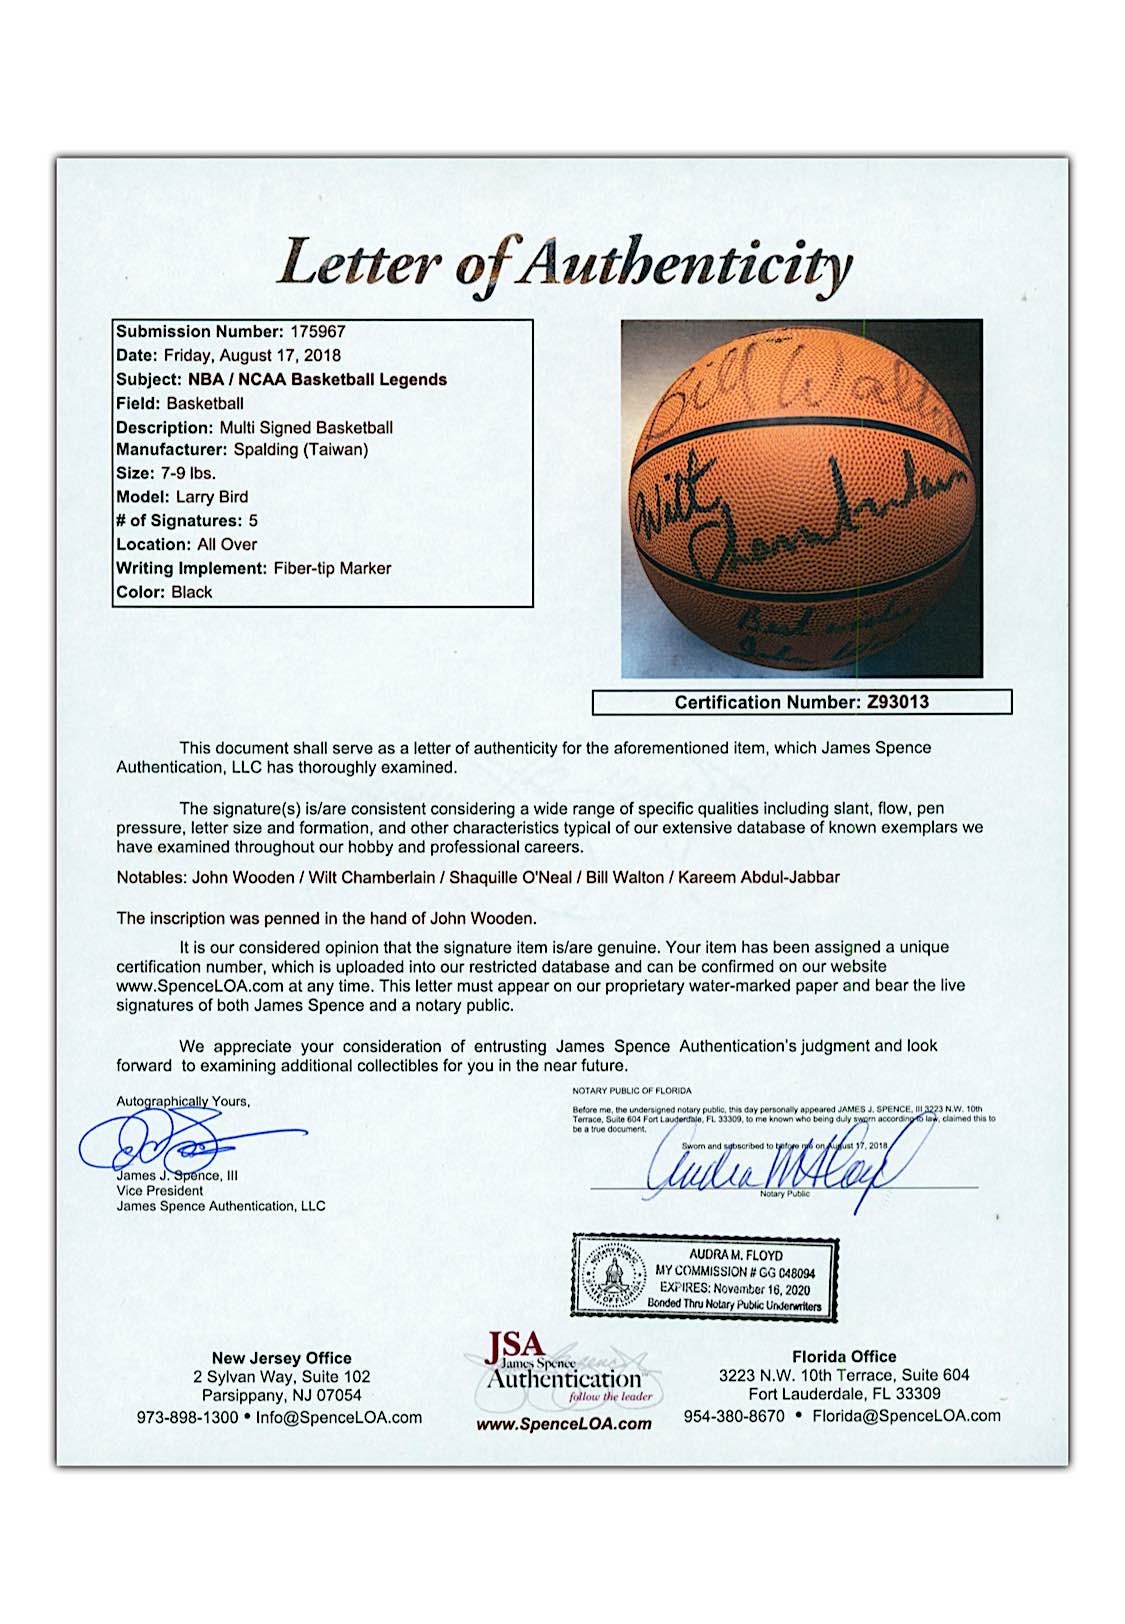 Letter of Authenticity
Submission Number: 175967
Date: Friday, August 17, 2018
Subject: NBA / NCAA Basketball Legends
Field: Basketball
Description: Multi Signed Basketball
Manufacturer: Spalding (Taiwan)
Size: 7-9 lbs.
Model: Larry Bird
# of Signatures: 5
Location: All Over
Writing Implement: Fiber-tip Marker
Color: Black
Bill Walton
Wilt
Chamberlain
Best wishes
John
Certification Number: Z93013
This document shall serve as a letter of authenticity for the aforementioned item, which James Spence
Authentication, LLC has thoroughly examined.
The signature(s) is/are consistent considering a wide range of specific qualities including slant, flow, pen
pressure, letter size and formation, and other characteristics typical of our extensive database of known exemplars we
have examined throughout our hobby and professional careers.
Notables: John Wooden / Wilt Chamberlain / Shaquille O'Neal / Bill Walton / Kareem Abdul-Jabbar
The inscription was penned in the hand of John Wooden.
It is our considered opinion that the signature item is/are genuine. Your item has been assigned a unique
certification number, which is uploaded into our restricted database and can be confirmed on our website
www.SpenceLOA.com at any time. This letter must appear on our proprietary water-marked paper and bear the live
signatures of both James Spence and a notary public.
We appreciate your consideration of entrusting James Spence Authentication's judgment and look
forward to examining additional collectibles for you in the near future.
Autographically Yours,
James J. Spence, III
Vice President
James Spence Authentication, LLC
NOTARY PUBLIC OF FLORIDA
Before me, the undersigned notary public, this day personally appeared JAMES J. SPENCE, III 3223 N.W. 10th
Terrace, Suite 604 Fort Lauderdale, FL 33309, to me known who being duly sworn according to law, claimed this to
be a true document.
Sworn and subscribed to before me on August 17, 2018
Audra M Floyd
Notary Public
NOTARY PUBLIC
STATE OF FLORIDA
AUDRA M. FLOYD
MY COMMISSION # GG 048094
EXPIRES: November 16, 2020
Bonded Thru Notary Public Underwriters
New Jersey Office
2 Sylvan Way, Suite 102
Parsippany, NJ 07054
973-898-1300 • Info@SpenceLOA.com
JSA
James Spence
Authentication
follow the leader
www.SpenceLOA.com
Florida Office
3223 N.W. 10th Terrace, Suite 604
Fort Lauderdale, FL 33309
954-380-8670 • Florida@SpenceLOA.com